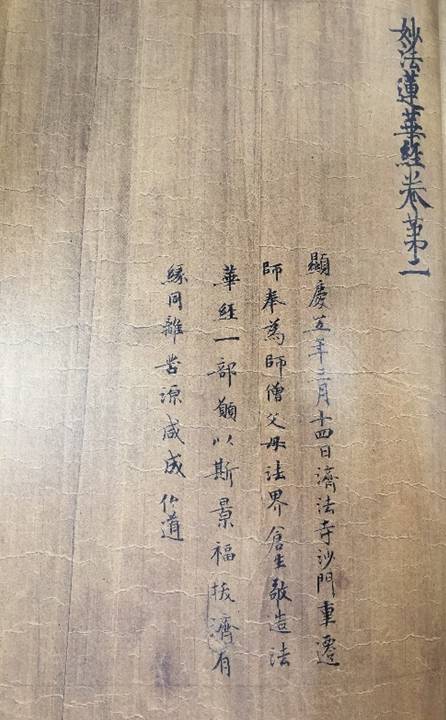 妙法蓮華經卷苐二
顯慶五年三月十四日濟法寺沙門重遷
師奉為師僧父母法界倉生敬造法
華経一部願以斯景福拔濟有
縁同離苦源咸成仏道